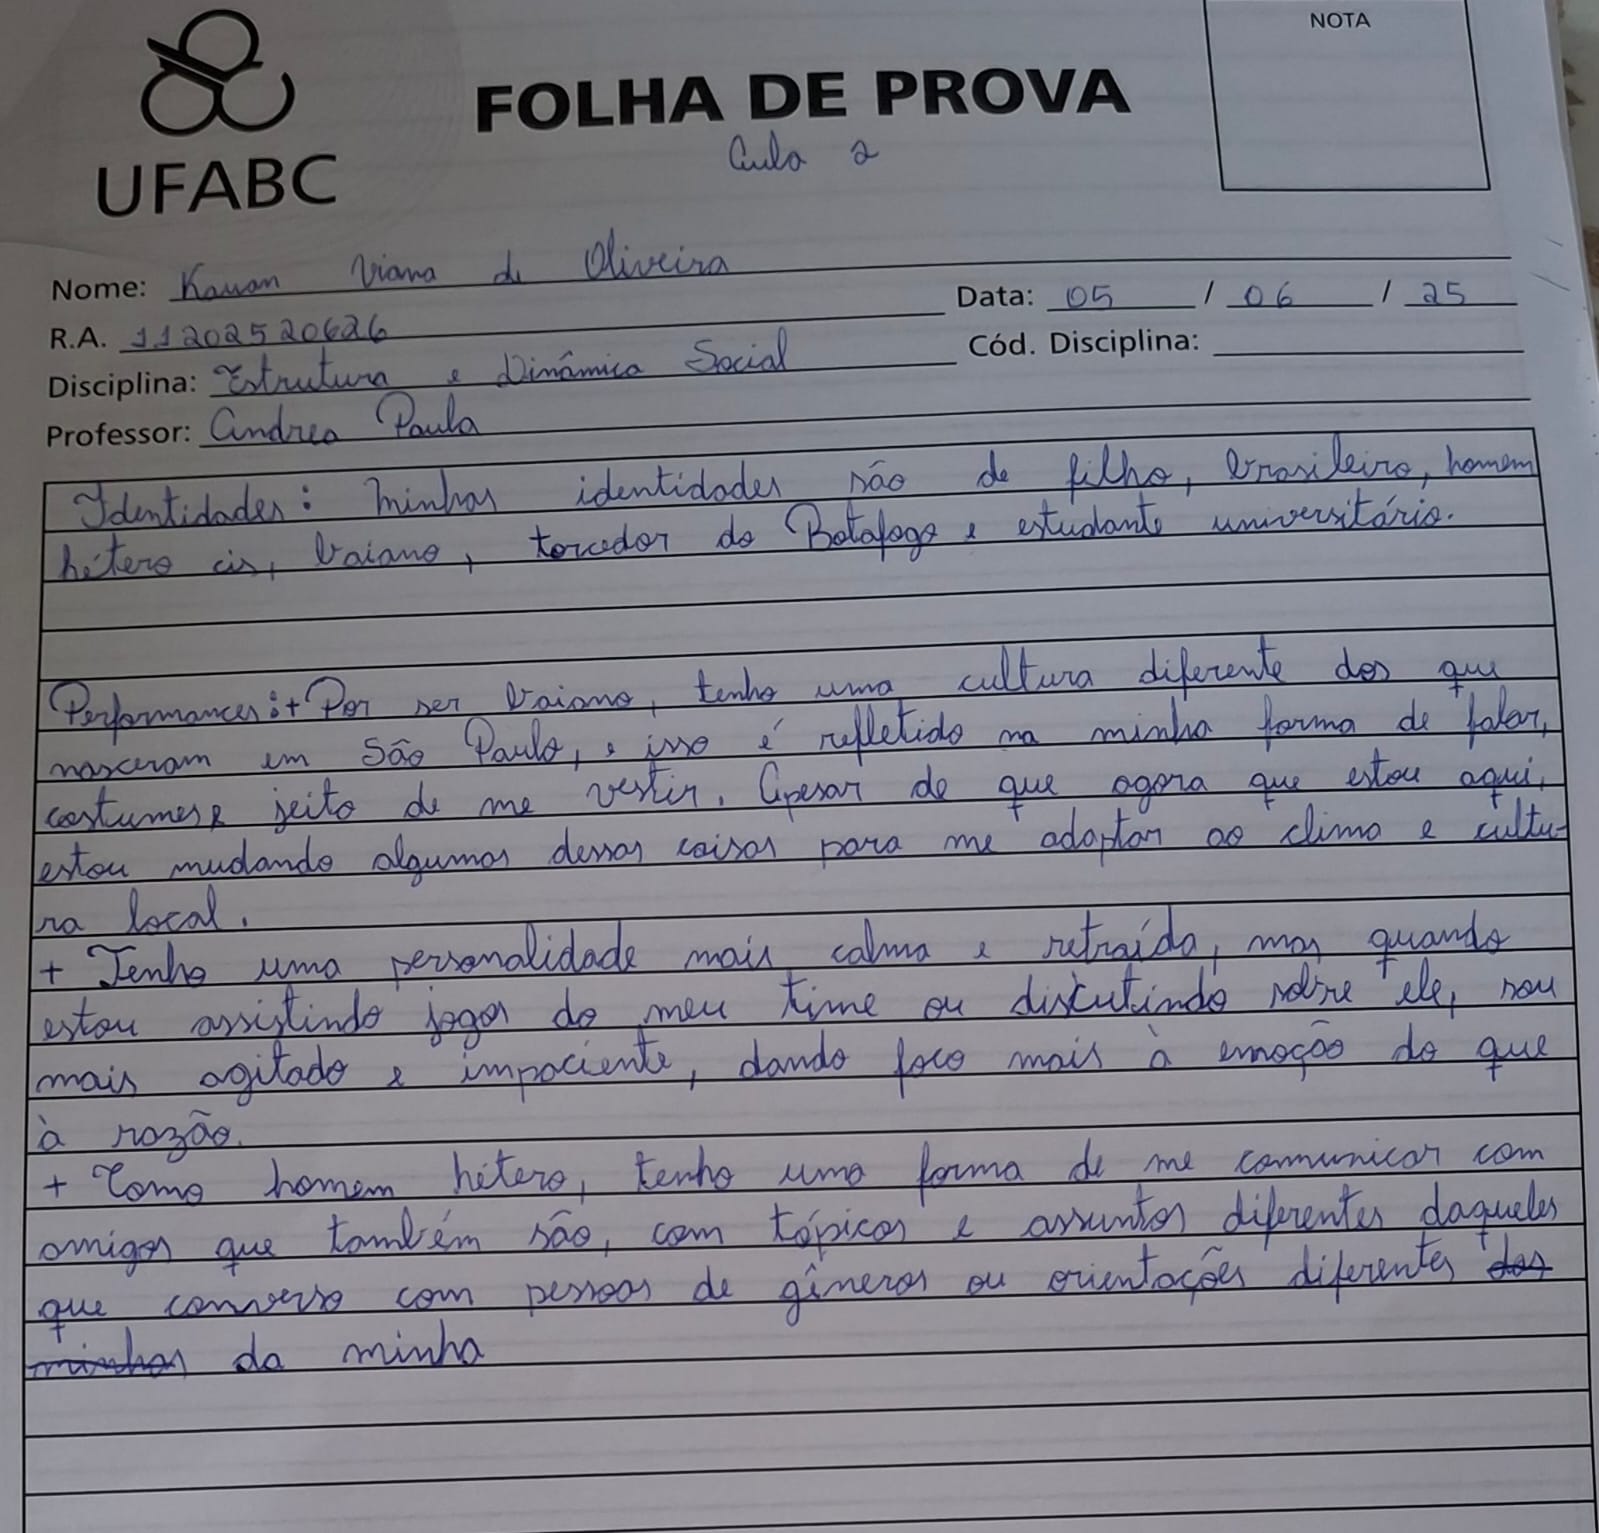 NOTA
FOLHA DE PROVA
Aula 2
UFABC
Nome: Kauan Viana de Oliveira
Data: 05 / 06 / 25
R.A. 11202520626
Cód. Disciplina:
Disciplina: Estrutura e Dinâmica Social
Professor: Andrea Paula
Identidades: Minhas identidades são de filho, brasileiro, homem
hétero cis, baiano, torcedor do Botafogo e estudante universitário.
Performances: + Por ser baiano, tenho uma cultura diferente dos que
nasceram em São Paulo, e isso é refletido na minha forma de falar,
costumes e jeito de me vestir. Apesar de que agora que estou aqui,
estou mudando algumas dessas coisas para me adaptar ao clima e cultu-
ra local.
+ Tenho uma personalidade mais calma e retraída, mas quando
estou assistindo jogos do meu time ou discutindo sobre ele, sou
mais agitado e impaciente, dando foco mais à emoção do que
à razão.
+ Como homem hétero, tenho uma forma de me comunicar com
amigos que também são, com tópicos e assuntos diferentes daqueles
que converso com pessoas de gêneros ou orientações diferentes das
minhas da minha